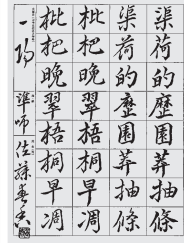 渠荷的歷園莽抽條
渠荷的歷園莽抽條
枇杷晚翠梧桐早凋
枇杷晚翠梧桐早凋